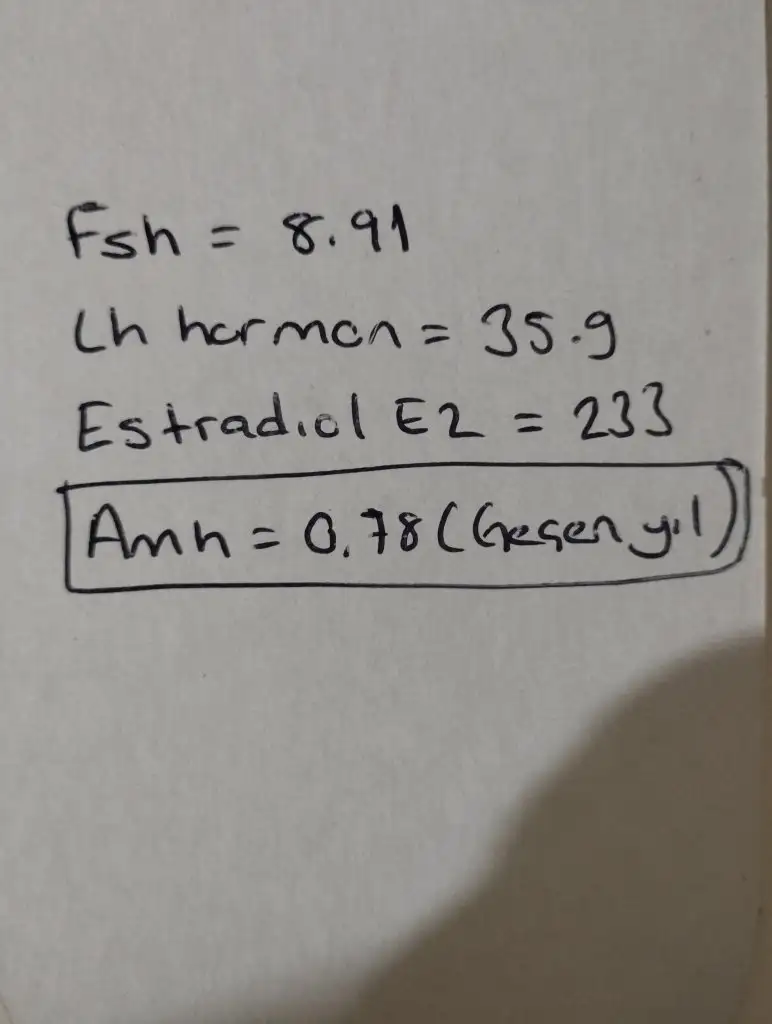 Fsh = 8.91
Lh hormon = 35.9
Estradiol E2 = 233
Amh = 0.78 (Geçen yıl)